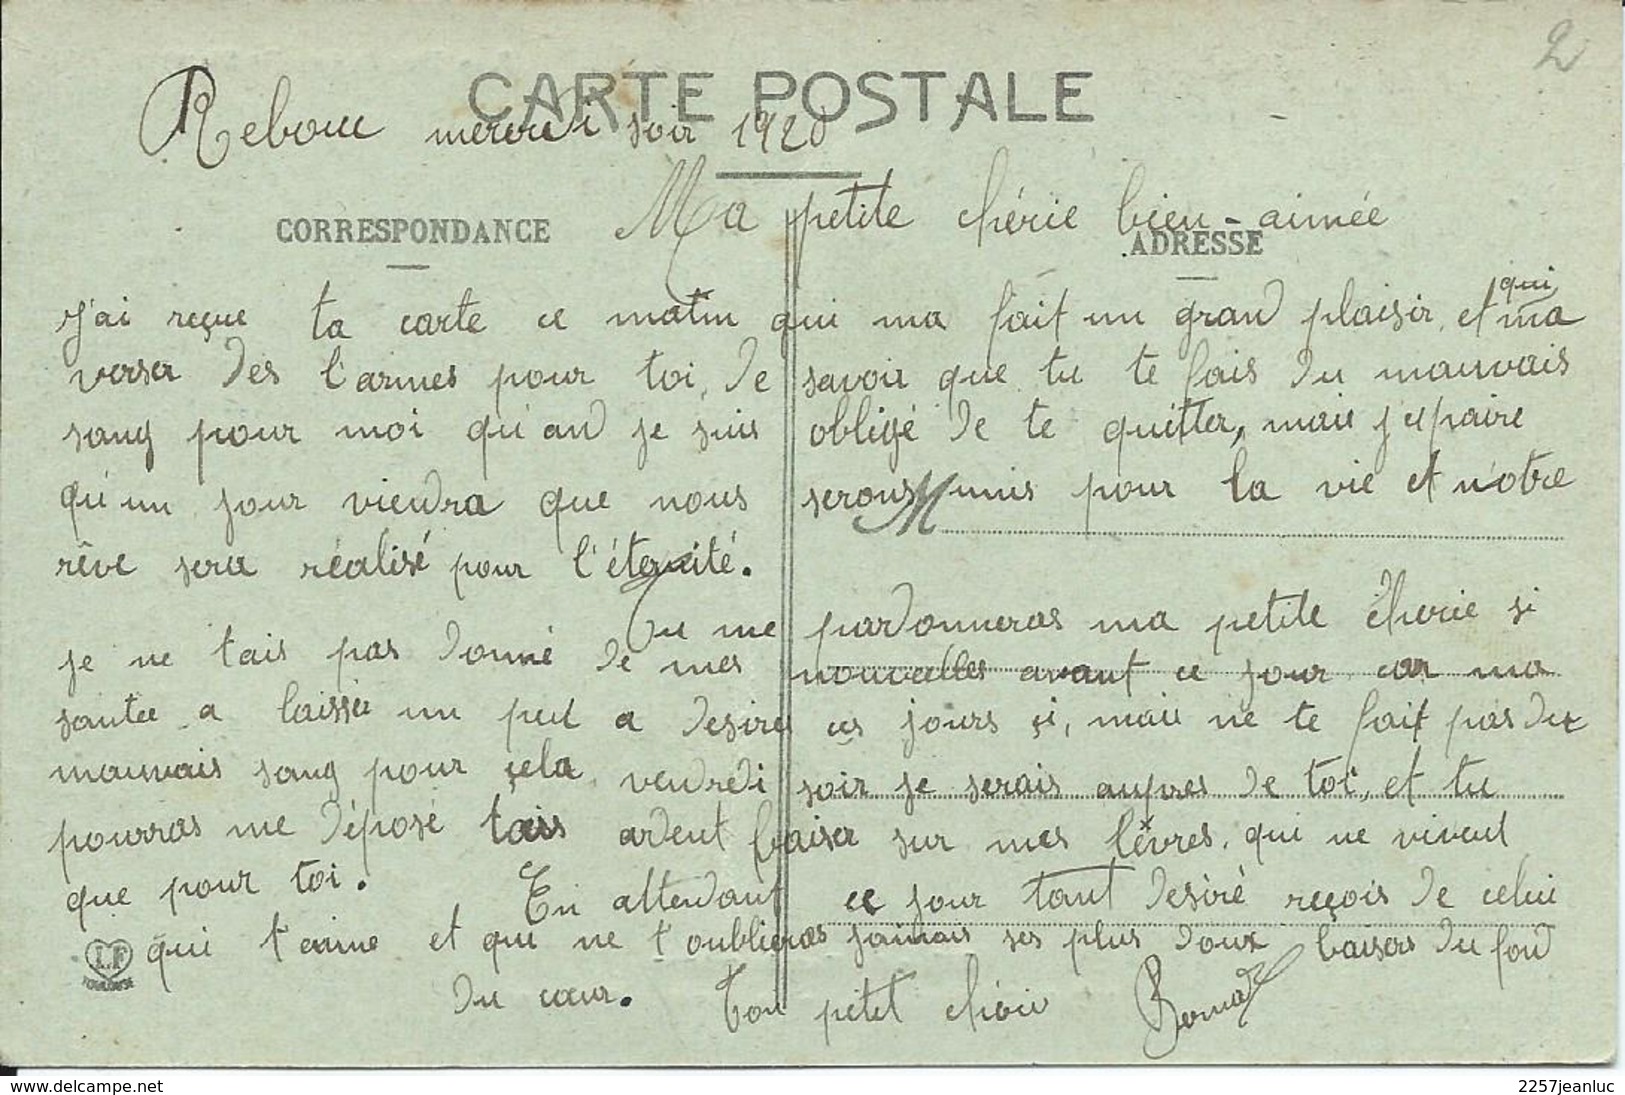 2
CARTE POSTALE
Rebouc mercredi soir 1920
Ma petite chérie bien-aimée
CORRESPONDANCE
ADRESSE
j'ai reçue ta carte ce matin qui ma fait un grand plaisir, et qui ma
verser des l'armes pour toi, de savoir que tu te fais du mauvais
sang pour moi qu'and je suis obligé de te quitter, mais j'espaire
qu'un jour viendra que nous serons unis pour la vie et nôtre
M
rêve sera réalisé pour l'éternité.
Tu me pardonneras ma petite chérie si
je ne tais pas donné de mes nouvelles avant ce jour car ma
santée a laissée un peu a desirer ces jours çi, mais ne te fait pas du
mauvais sang pour çela, vendredi soir je serais aupres de toi, et tu
pourras me déposé tais ardent baiser sur mes lèvres, qui ne vivent
que pour toi. En attendant ce jour tant désiré reçois de celui
qui t'aime et qui ne t'oublieras jamais ses plus doux baisers du fond
du cœur. Ton petit chéri
I.F
TOULOUSE
delcampe.net
2257jeanluc